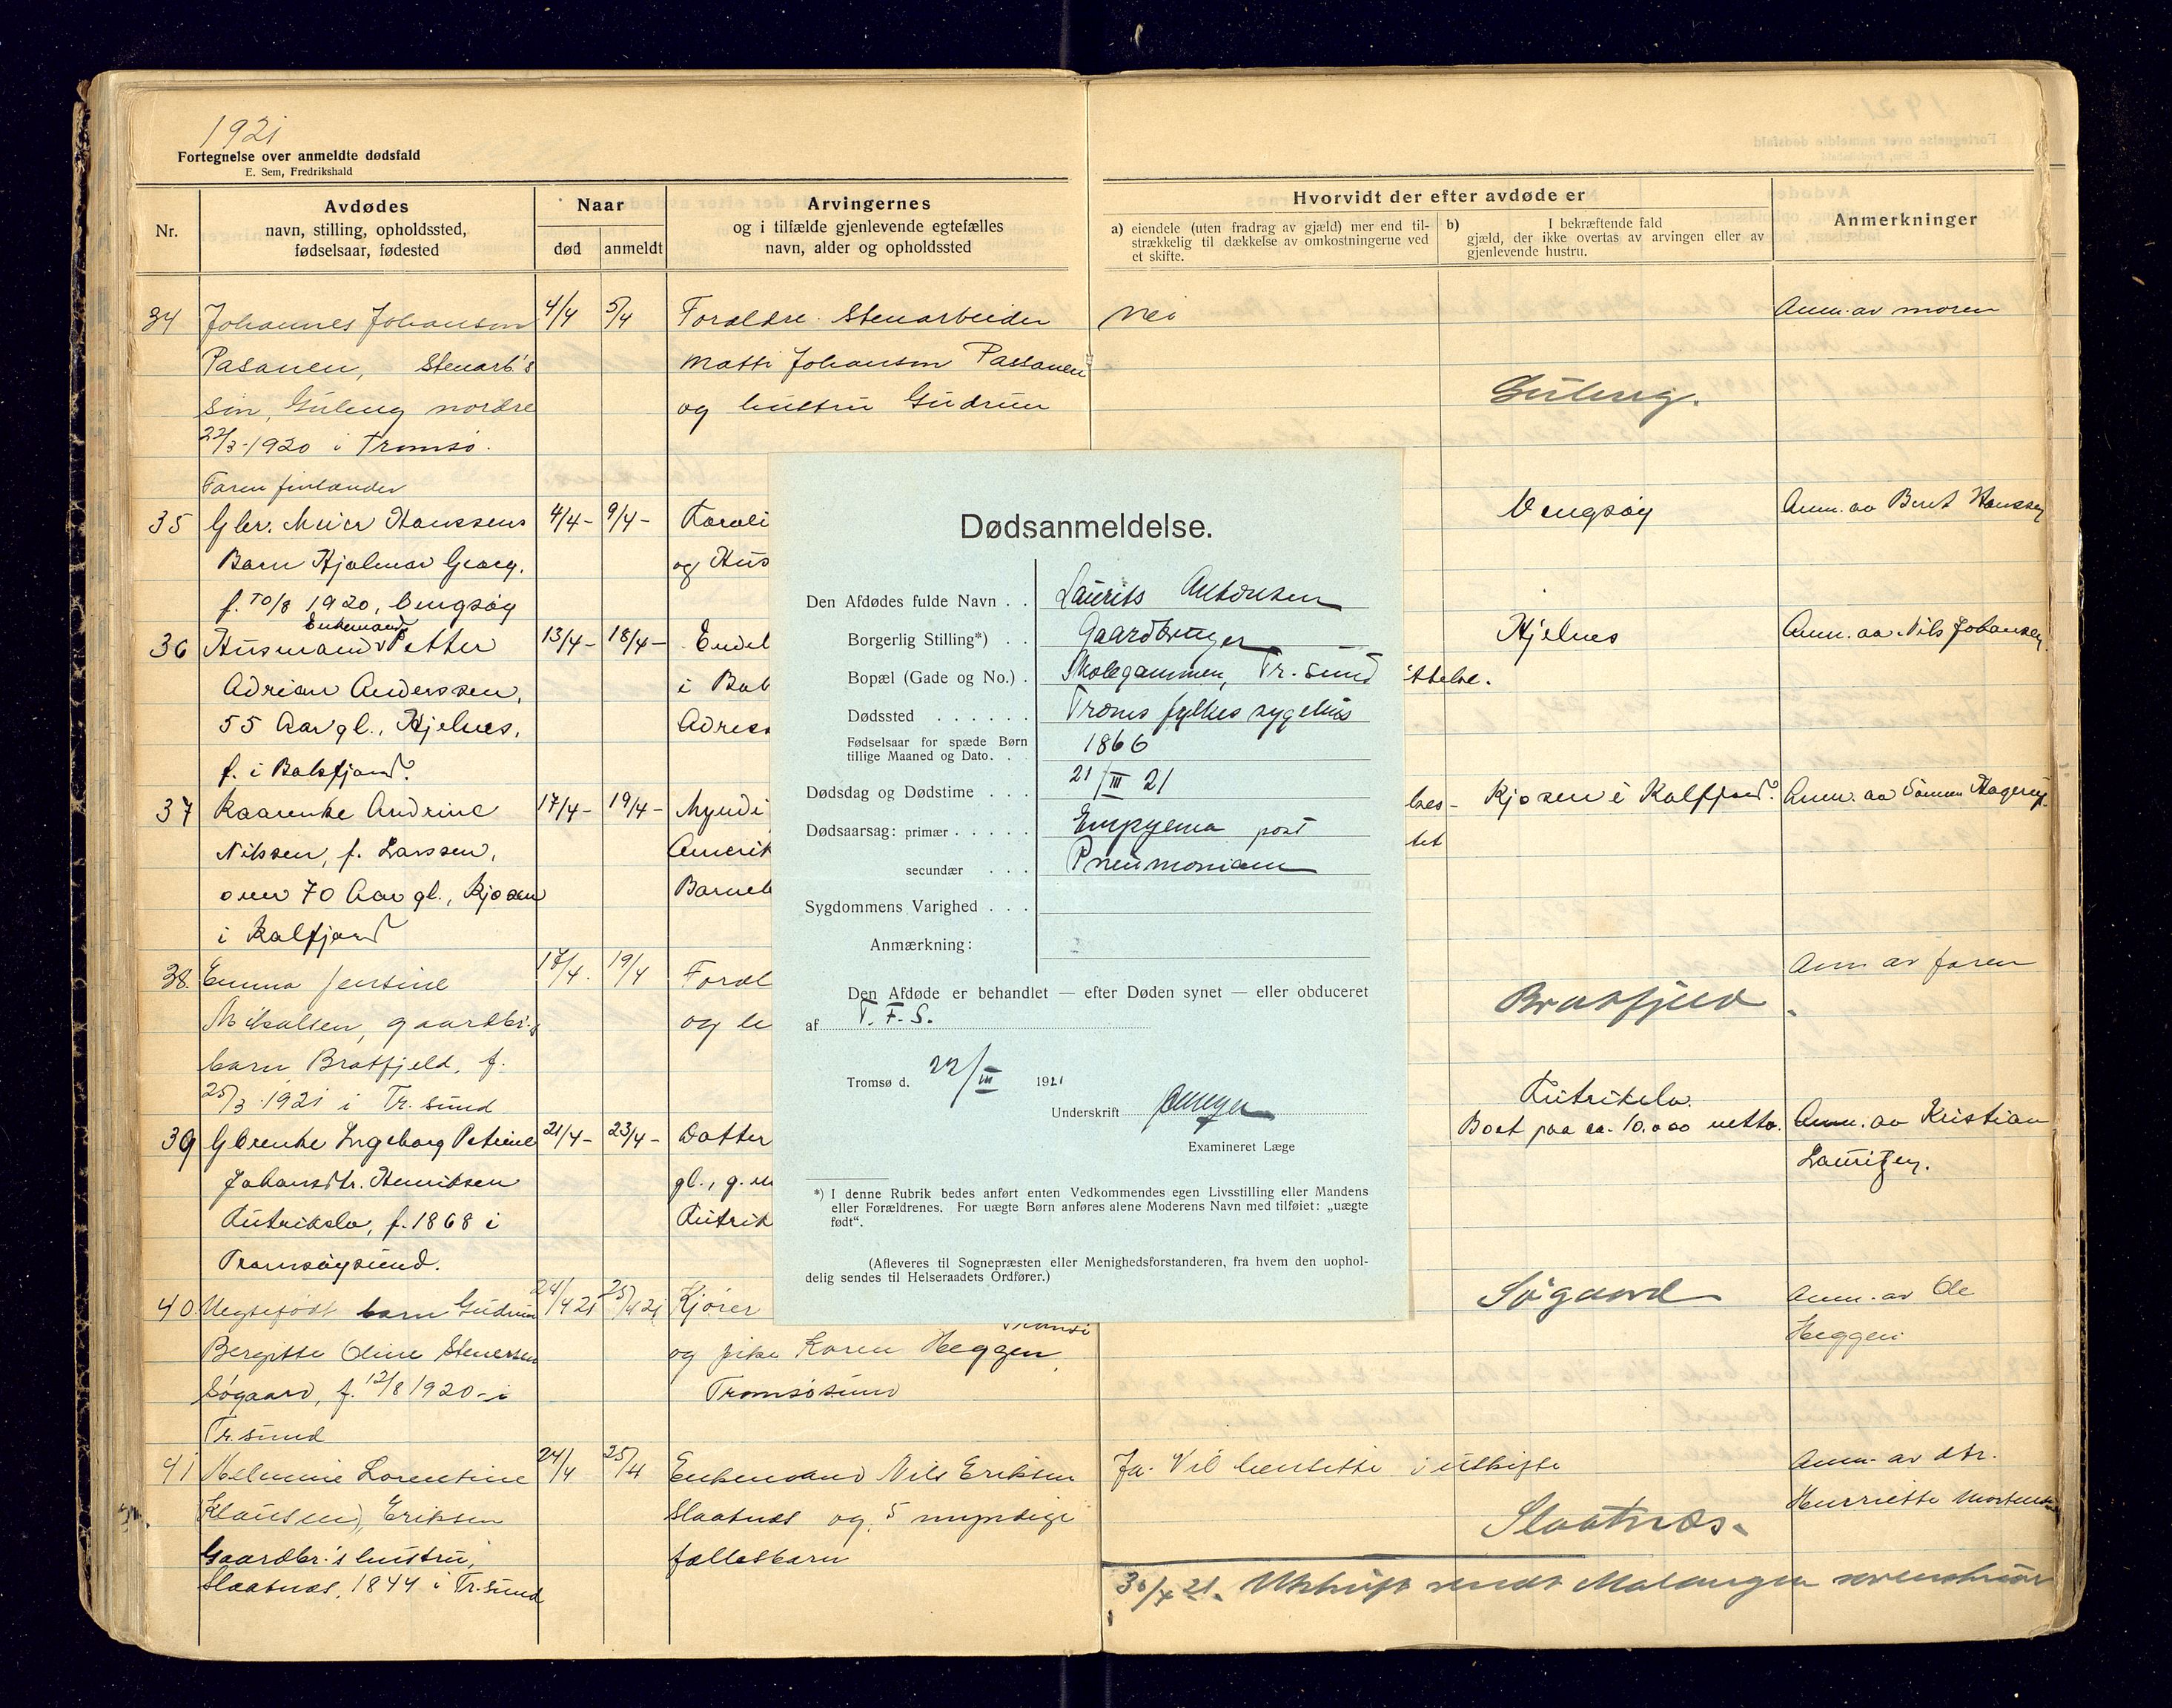 1921
Fortegnelse over anmeldte dødsfald
E. Sem, Fredrikshald
Nr.
Avdødes
navn, stilling, opholdssted,
fødselsaar, fødested
Naar
død
anmeldt
Arvingernes
og i tilfælde gjenlevende egtefælles
navn, alder og opholdssted
Hvorvidt der efter avdøde er
a) eiendele (uten fradrag av gjæld) mer end til-
strækkelig til dækkelse av omkostningerne ved
et skifte.
b) I bekræftende fald
gjæld, der ikke overtas av arvingen eller av
gjenlevende hustru.
Anmerkninger
34 Johannes Johanson 4/4 5/4 Foræeldre. Stenarbeider nei Anm. av moren
Pasanen, Stenarb's Matti Johanson Passanen
søn, Guleng nordre og hustru Gudrun Guleng.
22/3-1920 i Tromsø.
Faren finlænder
35 Gbr. Meier Hanssens 4/4- 9/4- Vengsøy Anm. av Berit Hanssen
Barn Hjalmar Georg. og Hus
f. 10/8 1920, Vengsøy
Enkemand
36 Husmand Petter 13/4- 18/4- Hjelnes Anm. av Nils Johansen
Adrian Anderssen, i Bal
55 Aar gl., Hjelnes, Adress
f. i Balsfjord.
37 Kaarenke Andrine 17/4- 19/4- Myndi Kjosen i Kalfjord. Anm. av
Nilssen, f. Larssen, Amerik tet
over 70 Aar gl., Kjosen Barneb
i Kalfjord
38. Emma Jensine 17/4. 19/4 Foræl Anm av faren
Mikalsen, gaardbr.s og Bratfjeld
barn Bratfjeld, f.
25/3 1921 i Tr. sund
39 Gbrenke Ingeborg Petrine 21/4- 23/4- Datter Boet paa ca. 10.000 netto. Anm. av Kristian
Johansdtr. Henriksen gl., g. m Lauritzen.
f. 1868 i
Tromsøysund.
40 Uegtefødt barn Gudrun 24/4 21 25/4 21 Kjører Søgaard Anm. av Ole
Bergitte Oline Stenersen og pike Karen Heggen Heggen
Søgaard, f. 12/8 1920 - i Tromsøsund
Tr. sund
41 Lorentine 24/4 25/4 Enkemand Nils Eriksen Ja. Vil hensitte i uskifte Anm. av dtr.
(Klausen), Eriksen Slaatnes og 5 myndige Slaatnes. Henriette
Gaardbr.'s hustru, fællesbarn
Slaatnes, 1844 i Tr. sund
30/4 21. Utskrift sendt Malangen sorenskriver
Dødsanmeldelse.
Den Afdødes fulde Navn . . Laurits Antonsen
Borgerlig Stilling*) . . Gaardbruger
Bopæl (Gade og No.) . Skolegammen, Tr. sund
Dødssted . . . . . . Troms fylkes sygehus
Fødselsaar for spæde Børn
tillige Maaned og Dato. . . 1866
Dødsdag og Dødstime . . . 21/III 21
Dødsaarsag: primær . . . . . Empyema post
secundær . . . Pneumoniam
Sygdommens Varighed . . .
Anmærkning:
Den Afdøde er behandlet — efter Døden synet — eller obduceret
af T. F. S.
Tromsø d. 22/III 1921
Underskrift
Examineret Læge
*) I denne Rubrik bedes anført enten Vedkommendes egen Livsstilling eller Mandens
eller Forældrenes. For uægte Børn anføres alene Moderens Navn med tilføiet: „uægte
født“.
(Afleveres til Sognepræsten eller Menighedsforstanderen, fra hvem den uophol-
delig sendes til Helseraadets Ordfører.)